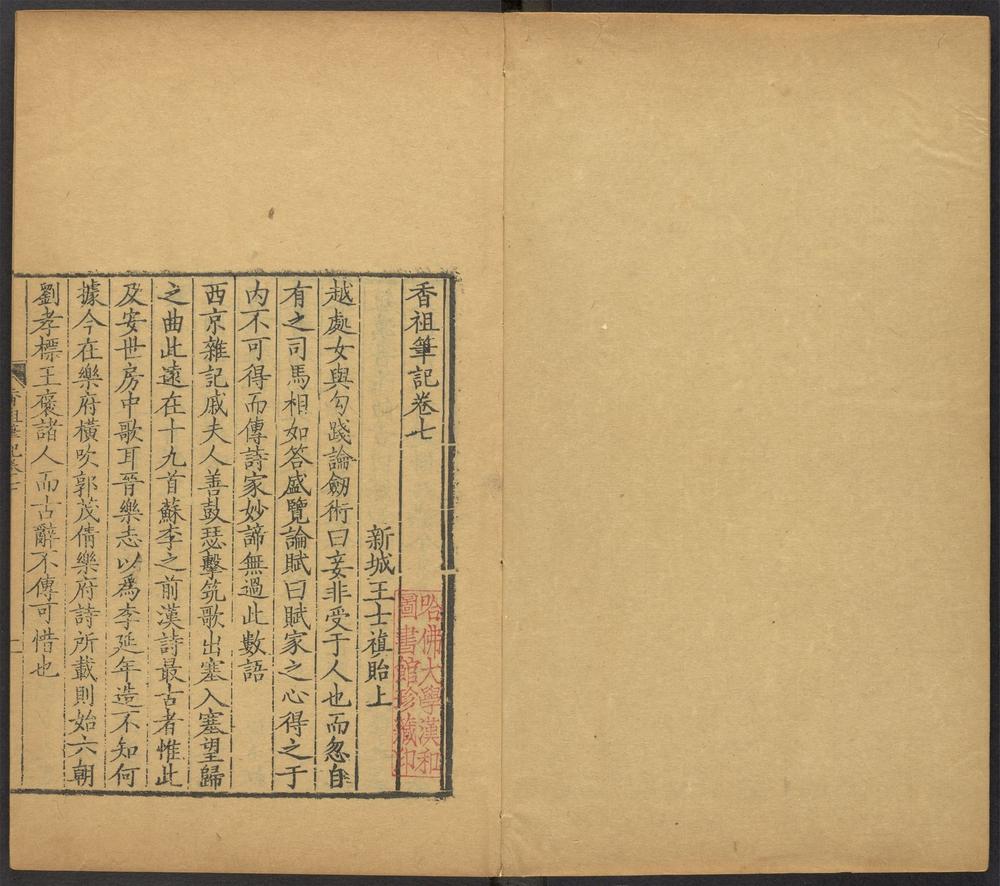 香祖筆記卷七
新城王士禛貽上
越處女與勾踐論劒術曰妾非受于人也而忽自
有之司馬相如答盛覽論賦曰賦家之心得之于
内不可得而傳詩家妙諦無過此數語
西京雜記戚夫人善鼓瑟擊筑歌出塞入塞望歸
之曲此遠在十九首蘇李之前漢詩最古者惟此
及安世房中歌耳晉樂志以爲李延年造不知何
據今在樂府橫吹郭茂倩樂府詩所載則始六朝
劉孝標王襃諸人而古辭不傳可惜也
香祖筆記卷七
一
哈佛大學漢和
圖書館珍藏印